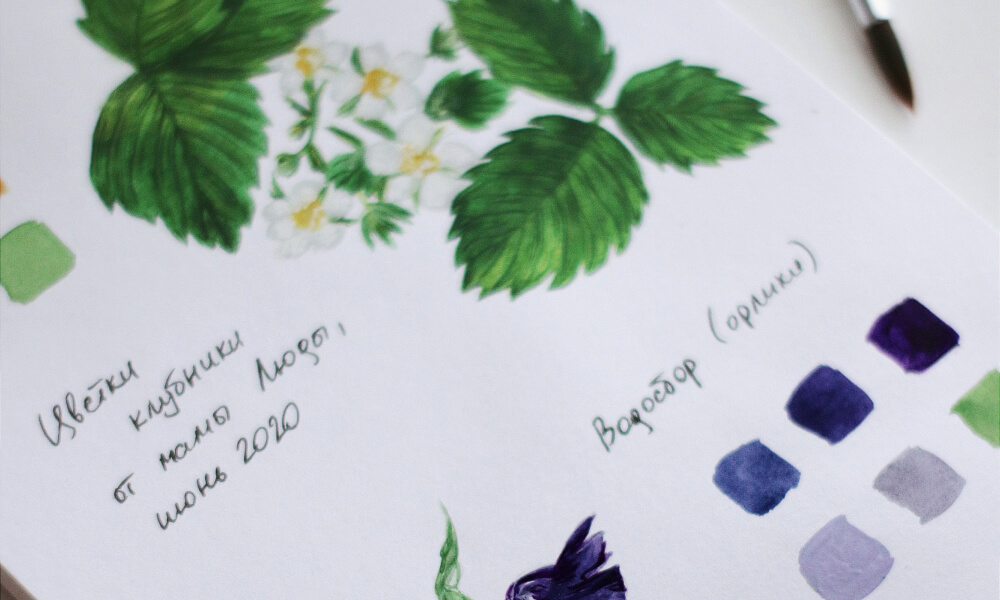 Цветки
клубники
от мамы Люды,
июнь 2020
Водосбор (орлики)